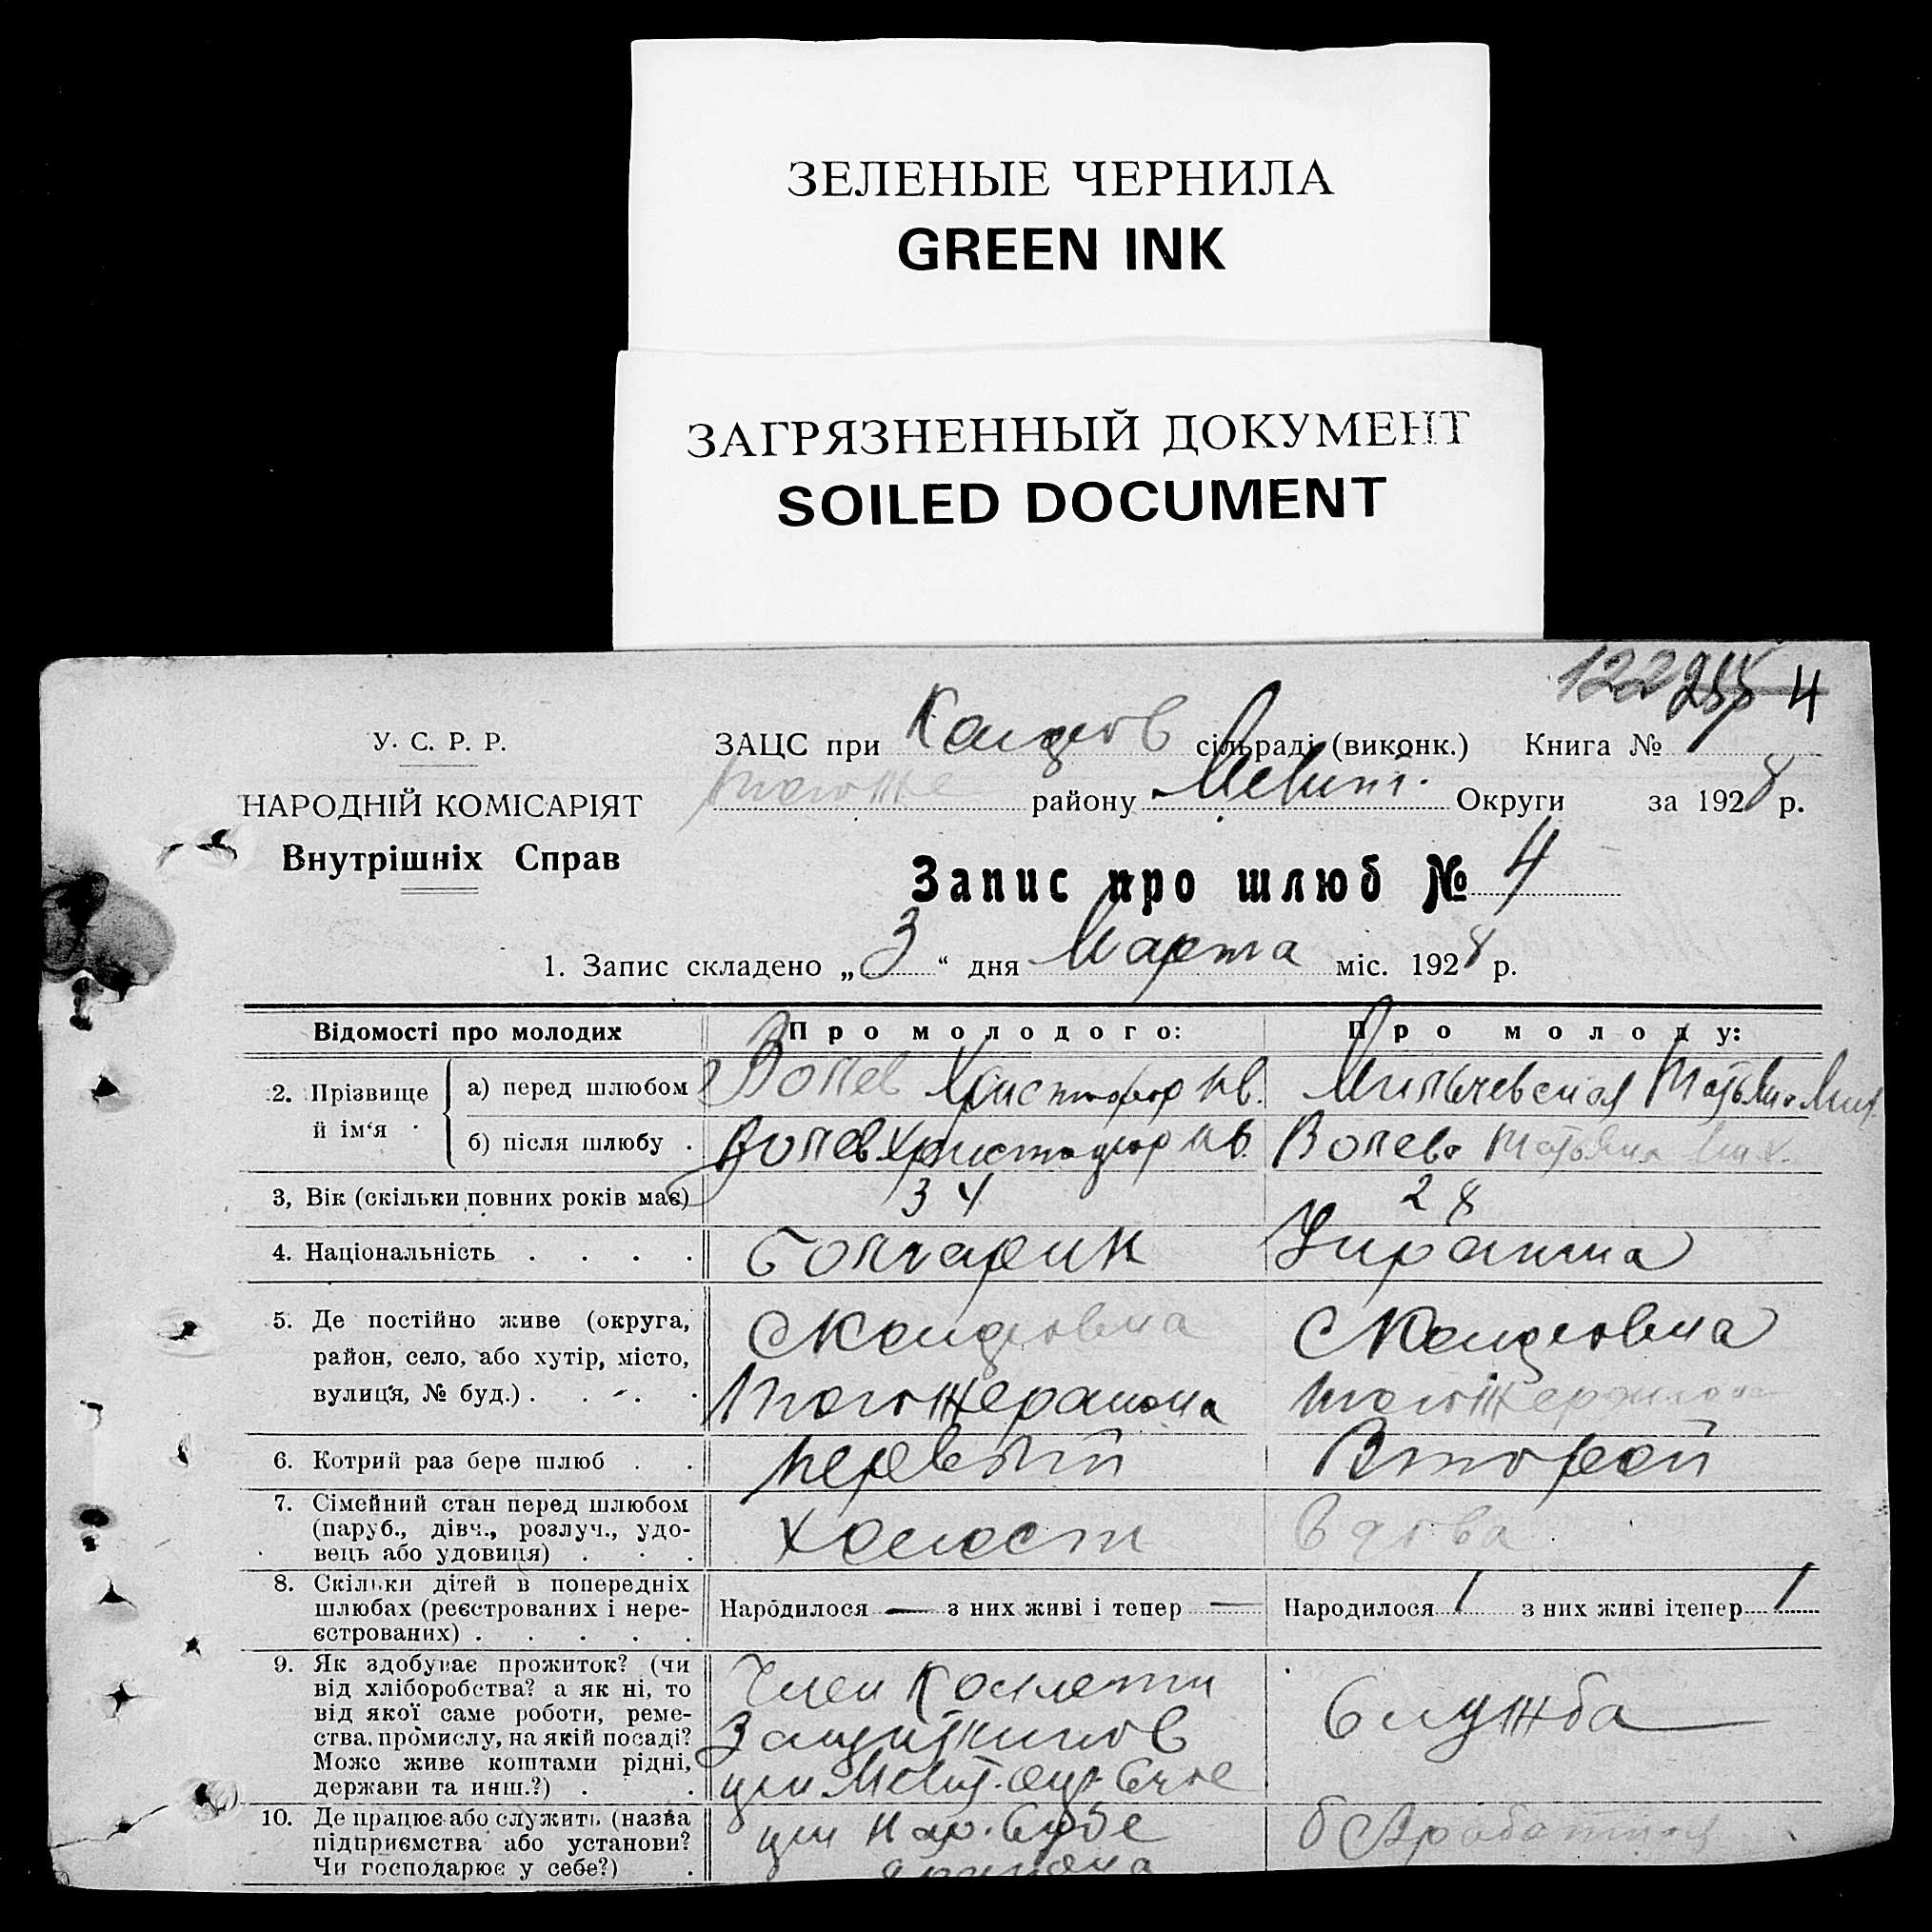 ЗЕЛЕНЫЕ ЧЕРНИЛА
GREEN INK
ЗАГРЯЗНЕННЫЙ ДОКУМЕНТ
SOILED DOCUMENT
122 4
У. С. Р. Р.
НАРОДНІЙ КОМІСАРІЯТ
Внутрішніх Справ
ЗАЦС при сільраді (виконк.) Книга №
району Мелит. Округи за 1928 р.
Запис про шлюб № 4
1. Запис складено „3“ дня Марта міс. 1928 р.
Відомості про молодих Про молодого: Про молоду:
2. Прізвище й ім‘я
а) перед шлюбом Волев Христофор Ив. Мильчевская Татьяна Мих.
б) після шлюбу Волев Христофор Ив. Волева Татьяна Мих.
3, Вік (скільки повних років має) 34 28
4. Національність Болгарин Украинка
5. Де постійно живе (округа,
район, село, або хутір, місто,
вулиця, № буд.)
тогоже района тогоже района
6. Котрий раз бере шлюб первый Второй
7. Сімейний стан перед шлюбом
(паруб., дівч., розлуч., удо-
вець або удовиця) холост вдова
8. Скільки дітей в попередніх
шлюбах (реєстрованих і нере-
єстрованих)
Народилося — з них живі і тепер — Народилося 1 з них живі і тепер 1
9. Як здобуває прожиток? (чи
від хліборобства? а як ні, то
від якої саме роботи, реме-
ства, промислу, на якій посаді?
Може живе коштами рідні,
держави та инш.?)
Член Коллегии
Защитников
при Мелит. окр. Суде
Служба
10. Де працює або служить (назва
підприємства або установи?
Чи господарює у себе?)
при Нар. Суде
района